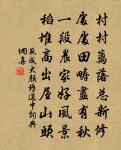 村村籬落總新修
處處田疇盡有秋
一段農家好風景
稻堆高出屋山頭
范成大顏橋道中詞典
網善